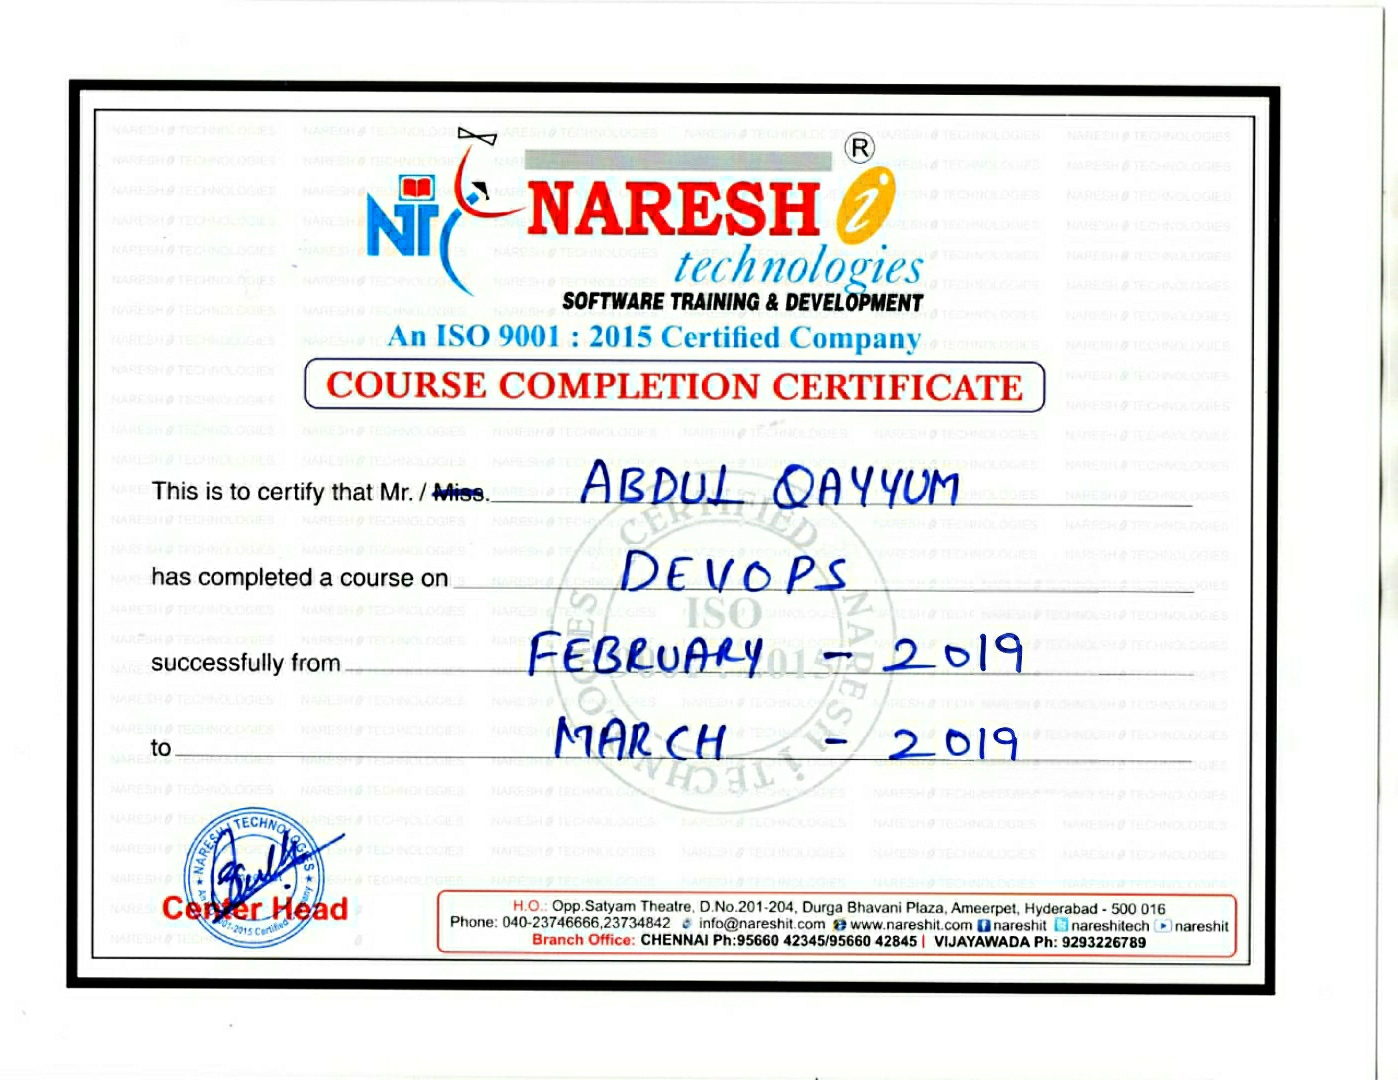 NARESH i
®
NTC
technologies
SOFTWARE TRAINING & DEVELOPMENT
An ISO 9001 : 2015 Certified Company
COURSE COMPLETION CERTIFICATE
This is to certify that Mr. / Miss. ABDUL QAYYUM
has completed a course on DEVOPS
successfully from FEBRUARY - 2019
to MARCH - 2019
CERTIFIED
ISO
9001 : 2015
NARESH i TECHNOLOGIES
NARESH i TECHNOLOGIES
Center Head
H.O.: Opp.Satyam Theatre, D.No.201-204, Durga Bhavani Plaza, Ameerpet, Hyderabad - 500 016
Phone: 040-23746666,23734842 info@nareshit.com www.nareshit.com nareshit nareshitech nareshit
Branch Office: CHENNAI Ph:95660 42345/95660 42845 | VIJAYAWADA Ph: 9293226789